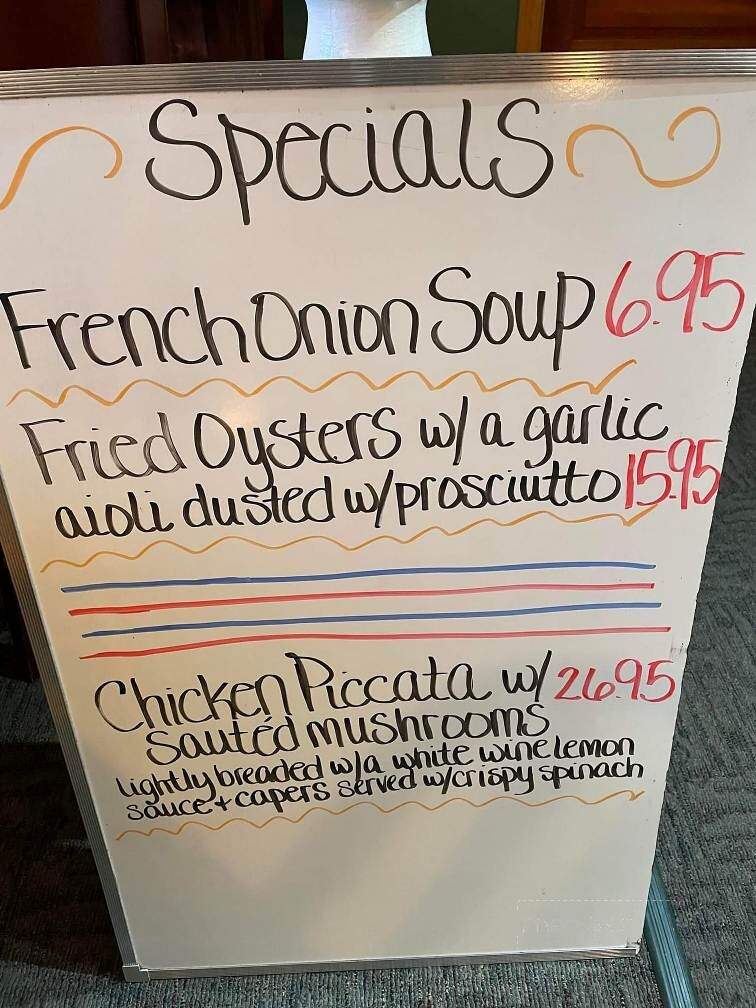 Specials
French Onion Soup 6.95
Fried Oysters w/ a garlic
aioli dusted w/prosciutto 15.95
Chicken Piccata w/ 26.95
Sautéd mushrooms
lightly breaded w/a white wine lemon
sauce + capers served w/crispy spinach